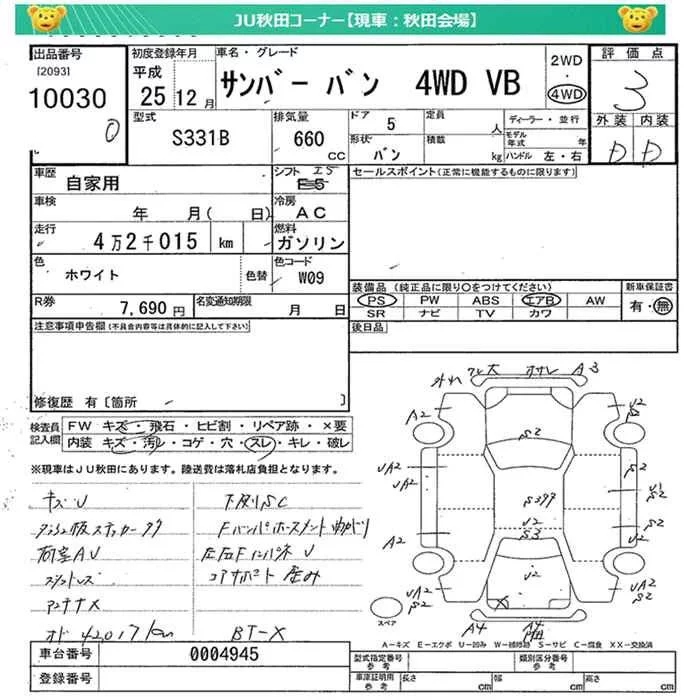 JU秋田コーナー【現車：秋田会場】
出品番号 初度登録年月 車名・グレード 2WD 評価点
[2093] 平成 サンバー バン 4WD VB ・ 3
10030 25年12月 4WD
0
型式 排気量 ドア 5 定員 人 ディーラー・並行 外装 内装
S331B 660 CC 形状 バン 積載 kg モデル年式 年 D D
ハンドル 左・右
車歴 自家用 シフト I5 E5 セールスポイント(正常に機能するものに限ります)
車検 年 月( 日) 冷房 AC
走行 4万2千015 km 燃料 ガソリン
色 ホワイト 色替 色コード W09
装備品 (純正品に限り〇をつけてください) 新車保証書
R券 7,690円 名変通知期限 月 日 PS PW ABS エアB AW 有・無
SR ナビ TV カワ
注意事項申告欄(不具合内容等は具体的に記入して下さい) 後日品
修復歴 有〔箇所 〕
検査員 FW キズ・飛石・ヒビ割・リペア跡・×要
記入欄 内装 キズ・汚レ・コゲ・穴・スレ・キレ・破レ
※現車はJU秋田にあります。陸送費は落札店負担となります。
キズU 下廻りSC
荷室AU
アンテナX
オド 42017km BT-X
A3
A2 U2
S2 S2
UA2 S2
UA2 S399 U1
S2
U2 S2
A2 S3 A2
U2
UA2 UA2
S2 X S2
スペア A4 A4
A－キズ E－エクボ U－凹み W－補修跡 S－サビ C－腐食 XX－交換済
車台番号 0004945 型式指定番号 参考 類別区分番号 参考
登録番号 車庫証明用 参考 長さ cm 幅 cm 高さ cm